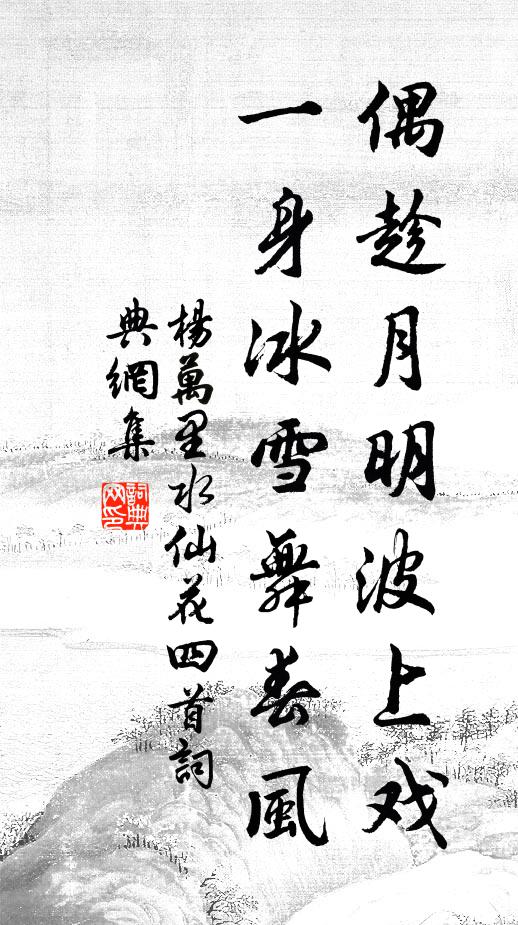 偶趁月明波上戏
一身冰雪舞春風
楊萬里水仙花四首詞
典網集
詞典網印